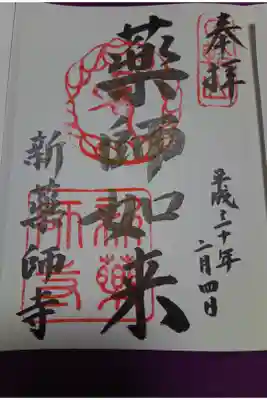 奉拝
平成三十年
二月四日
藥師如来
新藥師寺